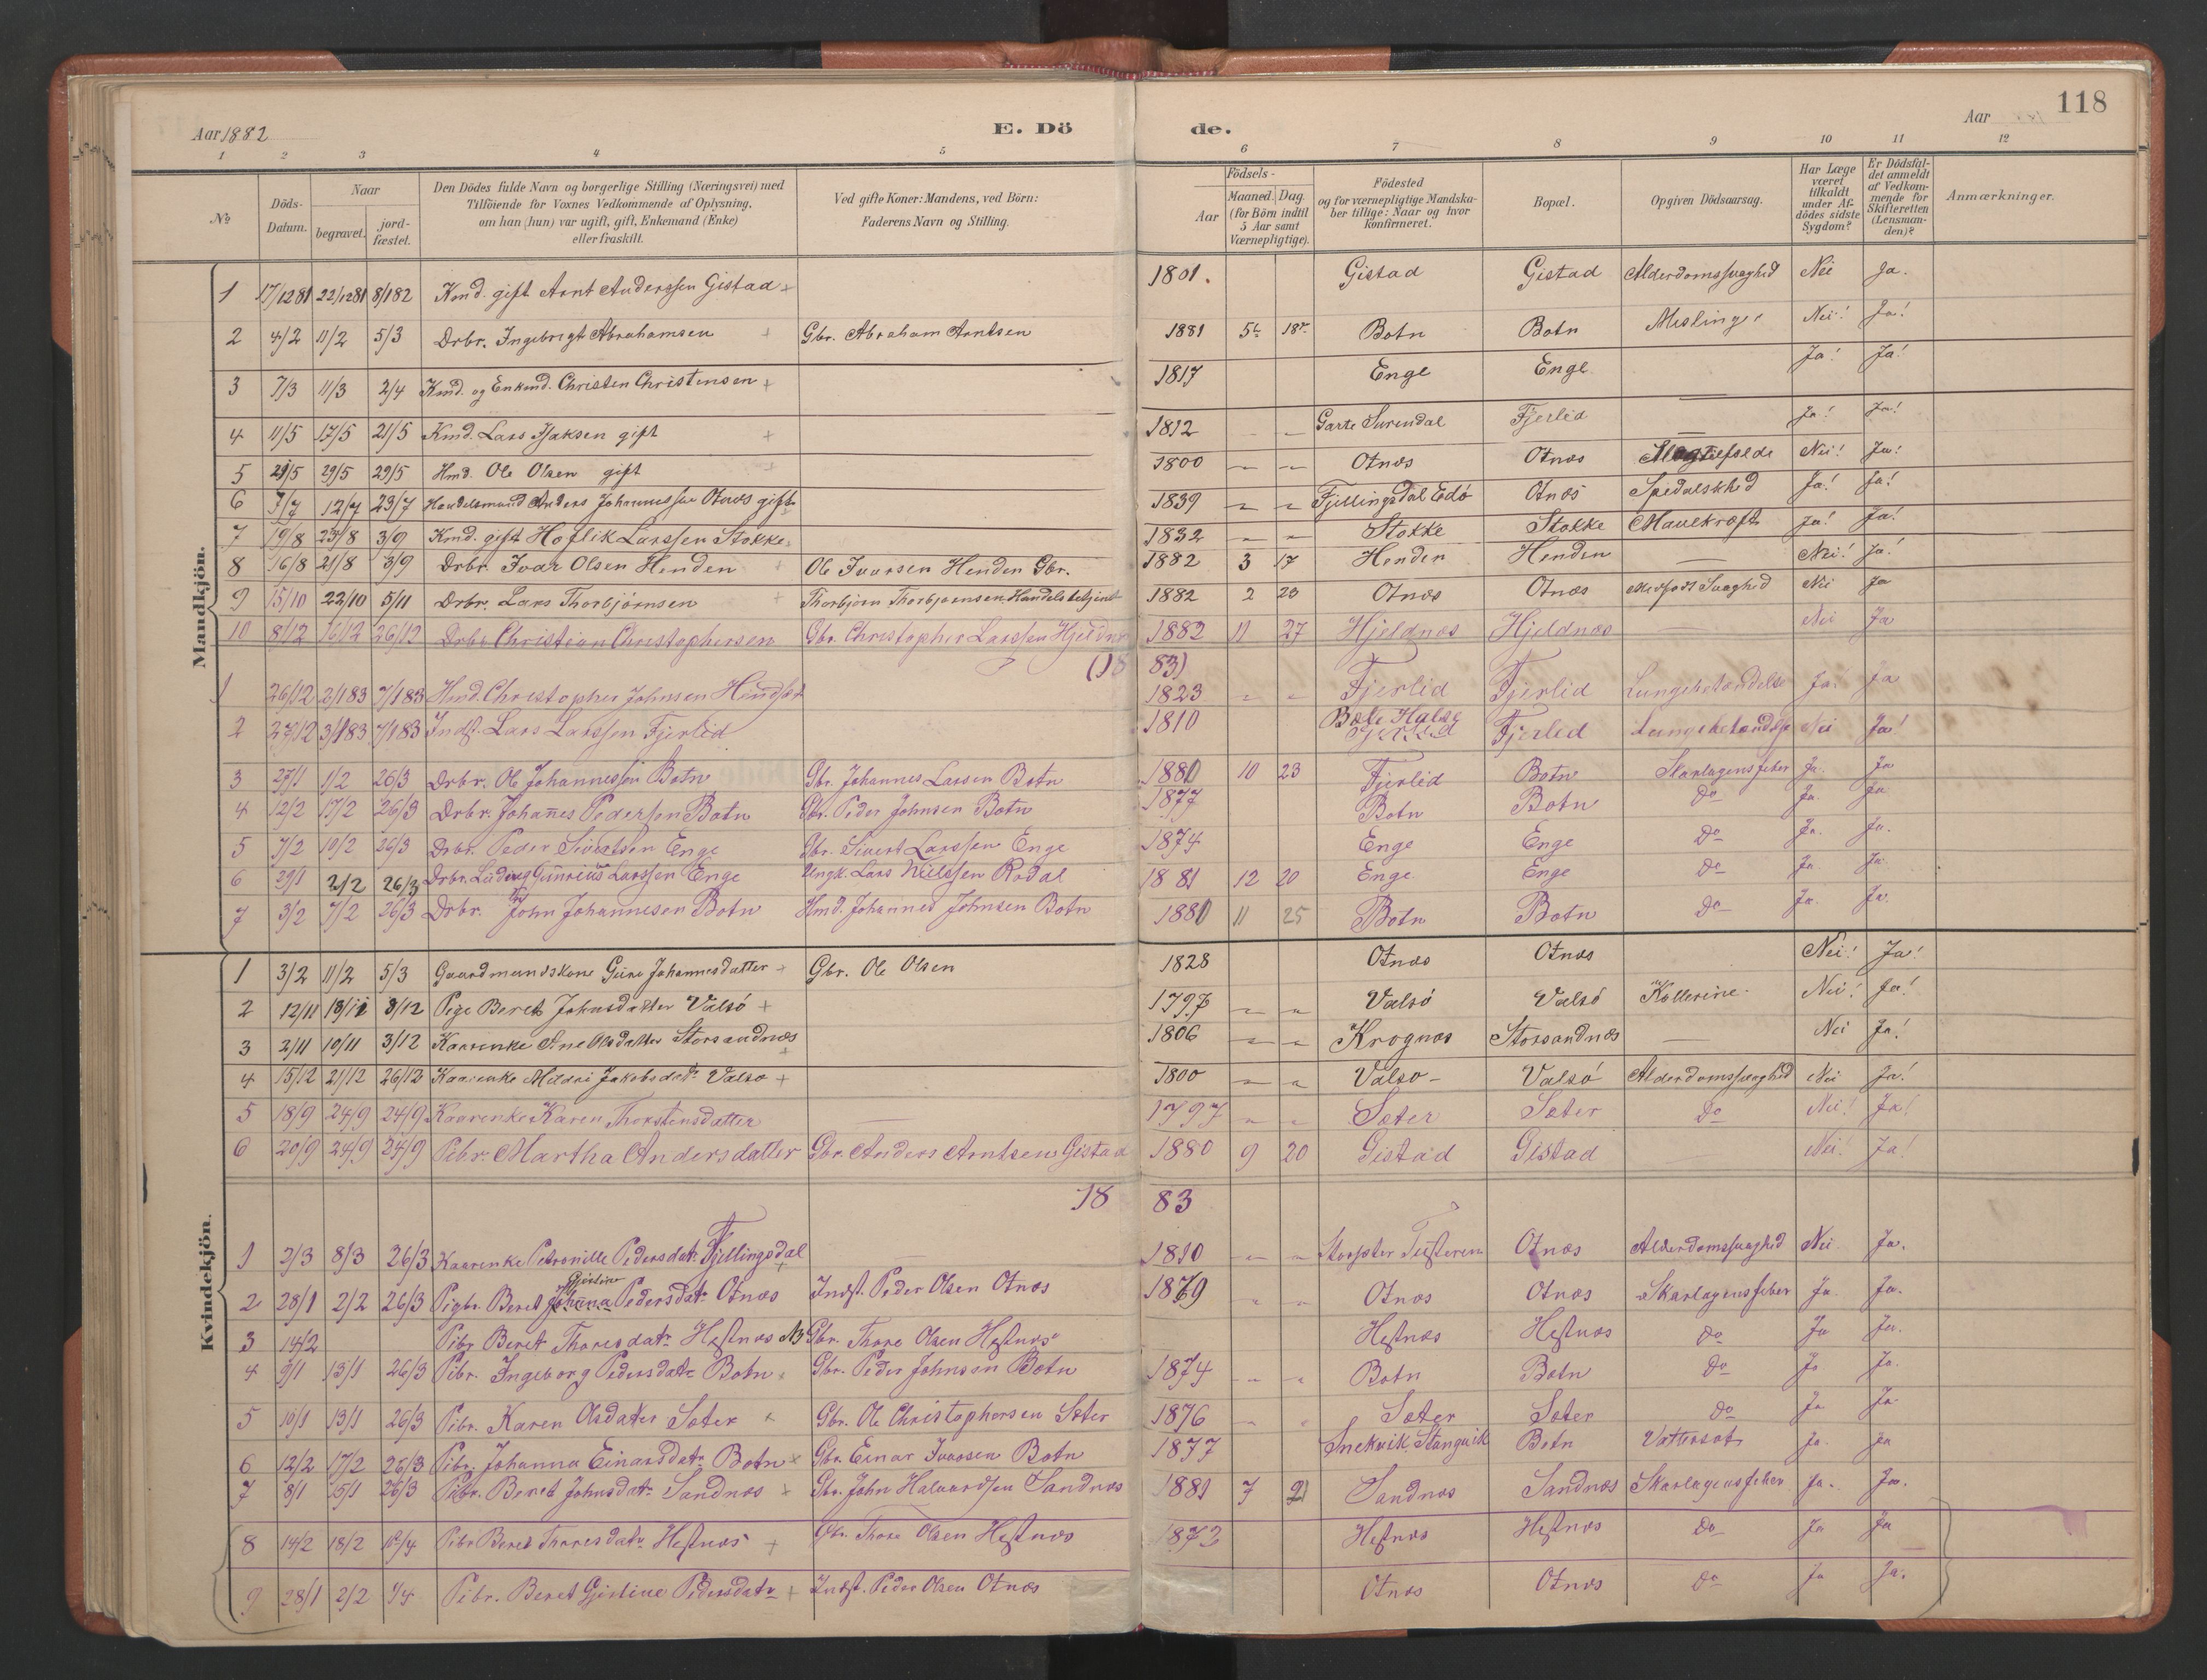 118
Aar 1882 E. Dö de. Aar
1 2 3 4 5 6 7 8 9 10 11 12
No
Döds-Datum.
Naar
begravet. jord-fæstet.
Den Dödes fulde Navn og borgerlige Stilling (Næringsvei) med
Tilföiende for Voxnes Vedkommende af Oplysning,
om han (hun) var ugift, gift, Enkemand (Enke)
eller fraskilt.
Ved gifte Koner: Mandens, ved Börn:
Faderens Navn og Stilling.
Födsels-
Aar
Maaned. Dag.
(for Börn indtil
5 Aar samt
Værnepligtige).
Födested
og for værnepligtige Mandska-
ber tillige: Naar og hvor
konfirmeret.
Bopæl.
Opgiven Dödsaarsag.
Har Læge
været
tilkaldt
under Af-
dödes sidste
Sygdom?
Er Dödsfal-
det anmeldt
af Vedkom-
mende for
Skifteretten
(Lensman-
den)?
Anmærkninger.
Mandkjön.
1 17/1281 22/1281 8/182 Kmd. gift Arnt Anderssen Gistad + 1801. Gistad Gistad Alderdomssvaghed Nei Ja.
2 4/2 11/2 5/3 Drbr. Ingebrigt Abrahamsen + Gbr. Abraham Arntsen 1881 5 18 Botn Botn Meslinger Nei! Ja!
3 7/3 11/3 2/4 Kmd. og Enkemd. Christen Christensen + 1817 Enge Enge Ja! Ja!
4 11/5 17/5 21/5 Kmd. Lars Isaksen gift + 1812 Garte Surendal Fjerlid — Ja! Ja!
5 21/5 29/5 29/5 Hmd. Ole Olsen gift + 1800 Otnæs Otnæs Nei! Ja!
6 7/7 12/7 23/7 Handelsmand Anders Johannessen Otnæs gift + 1839 Fjellingsdal Edö Otnæs Spedalskhed Ja! Ja!
7 19/8 23/8 3/9 Kmd. gift Hoflik Larssen Stokke 1832 Stokke Stokke Mavekræft Ja! Ja!
8 16/8 21/8 3/9 Drbr. Ivar Olsen Henden + Ole Ivarsen Henden Gbr. 1882 3 17 Henden Henden — Nei! Ja!
9 15/10 22/10 5/11 Drbr. Lars Thorbjörnsen + Thorbjörn Thorbjörnsen Handelsbetjent 1882 2 23 Otnæs Otnæs Medfödt Svaghed Nei Ja
10 8/12 16/12 26/12 Drbr. Christian Christophersen Gbr. Christopher Larssen Hjeldnæs 1882 11 27 Hjeldnæs Hjeldnæs — Nei Ja
(18 83)
1 26/12 2/183 7/183 Hmd. Christopher Johnsen Hendset 1823 Fjerlid Fjerlid Lungebetændelse Ja. Ja
2 27/12 3/183 7/183 Indst. Lars Larssen Fjerlid 1810 Bæle Halse Fjerlid Fjerlid Lungebetændelse Nei Ja!
3 27/1 1/2 26/3 Drbr. Ole Johannessen Botn Gbr. Johannes Larsen Botn 1880 10 23 Fjerlid Botn Skarlagensfeber Ja. Ja
4 12/2 17/2 26/3 Drbr. Johannes Pedersen Botn Gbr. Peder Johnsen Botn 1877 Botn Botn Do Ja. Ja
5 7/2 10/2 26/3 Drbr. Peder Sivertsen Enge Gbr. Sivert Larssen Enge 1874 Enge Enge Do Ja. Ja.
6 29/1 2/2 26/3 Drbr. Ludvig Gunerius Larssen Enge Ungk. Lars Nielssen Rodal 1881 12 20 Enge Enge Do Ja Ja
7 3/2 7/2 26/3 Drbr. John Johannesen Botn Hmd. Johannes Johnsen Botn 1881 11 25 Botn Botn Do Ja. Ja.
Kvindekjön.
1 3/2 11/2 5/3 Gaardmandskone Johannesdatter + Gbr. Ole Olsen 1828 Otnæs Otnæs Nei! Ja!
2 12/11 18/11 3/12 Pige Beret Johnsdatter Valsö + 1797 Valsö Valsö Kollerine Nei! Ja!
3 2/11 10/11 3/12 Kaarenke Ane Olsdatter Storsandnæs + 1806 Krognæs Storsandnæs — Nei Ja!
4 15/12 21/12 26/12 Kaarenke Jakobsdatr Valsö + 1800 Valsö Valsö Alderdomssvaghed Nei Ja!
5 18/9 24/9 24/9 Kaarenke Karen Thorstensdatter — 1797 Sæter Sæter Do Nei! Ja!
6 20/9 24/9 24/9 Pibr. Martha Andersdatter Gbr. Anders Arntsen Gistad 1880 9 20 Gistad Gistad Nei! Ja!
18 83
1 2/3 8/3 26/3 Kaarenke Petronille Pedersdatr Fjellingsdal + 1810 Tusteren Otnæs Alderdomssvaghed Nei Ja.
2 28/1 2/2 26/3 Pigbr. Beret Johanna Gjertine Pedersdatr Otnæs Indst. Peder Olsen Otnæs 1879 Otnæs Otnæs Skarlagensfeber Ja. Ja.
3 14/2 Pibr Beret Thoresdatr Hestnæs Gbr. Thore Olsen Hestnæs Hestnæs Hestnæs Do Ja Ja.
4 9/1 13/1 26/3 Pibr. Ingeborg Pedersdatr Botn Gbr. Peder Johnsen Botn 1874 Botn Botn Do Ja Ja.
5 10/1 13/1 26/3 Pibr. Karen Olsdatter Sæter Gbr. Ole Christophersen Sæter 1876 Sæter Sæter Do Ja Ja
6 12/2 17/2 26/3 Pibr. Johanna Einarsdatr Botn Gbr. Einar Ivarsen Botn 1877 Snekvik Stangvik Botn Vattersot Ja. Ja
7 8/1 15/1 26/3 Pibr. Beret Johnsdatr Sandnæs + Gbr. John Halvardsen Sandnæs 1881 7 21 Sandnæs Sandnæs Skarlagensfeber Ja. Ja.
8 14/2 18/2 Pibr Beret Thoresdatr Hestnæs + Gbr. Thore Olsen Hestnæs 1872 Hestnæs Hestnæs Do Ja Ja
9 28/1 2/2 1/4 Pibr. Beret Gjertine Pedersdatr + Indst. Peder Olsen Otnæs Otnæs Otnæs Do Ja Ja.